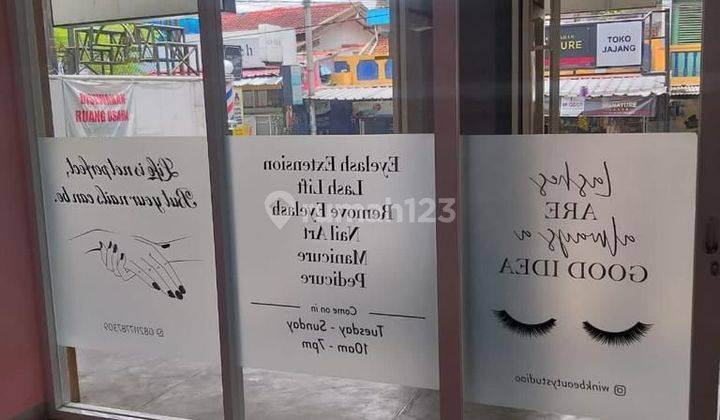 DISEWAKAN
RUANG USAHA
TOKO
LAJANG
SIGNATURE
Life is not perfect,
But your nails can be.
082117787309
Eyelash Extension
Lash Lift
Remove Eyelash
Nail Art
Manicure
Pedicure
Come on in
Tuesday - Sunday
10am - 7pm
lashes
ARE
always a
GOOD IDEA
@winkbeautystudioo
rumah123